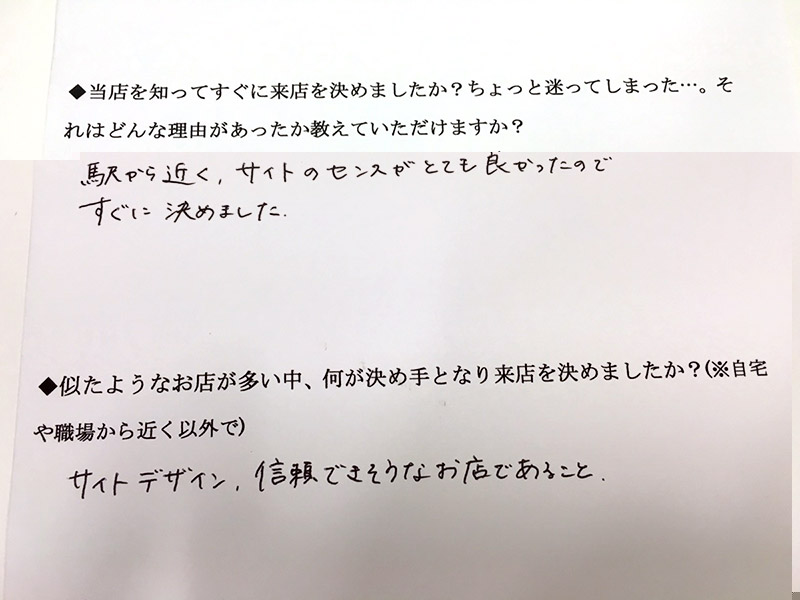 ◆当店を知ってすぐに来店を決めましたか？ちょっと迷ってしまった…。そ
れはどんな理由があったか教えていただけますか？
駅から近く,サイトのセンスがとても良かったので
すぐに決めました.
◆似たようなお店が多い中、何が決め手となり来店を決めましたか？(※自宅
や職場から近く以外で)
サイトデザイン,信頼できそうなお店であること.